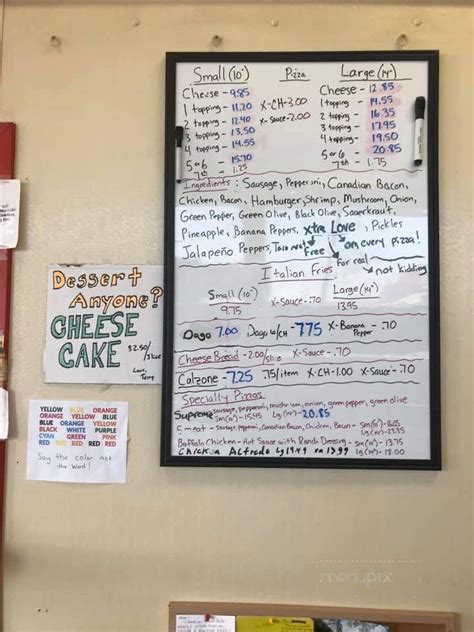 Small (10") Pizza Large (14")
Cheese - 9.85 Cheese - 12.85
1 topping - 11.20 X-CH-3.00 1 topping - 14.55
2 topping - 12.40 X-Sauce-2.00 2 topping - 16.35
3 topping - 13.50 3 topping - 17.95
4 topping - 14.55 4 topping - 19.50
5 or 6 - 15.70 5 or 6 - 20.85
7th - 1.25 7th - 1.75
Ingredients: Sausage, Pepperoni, Canadian Bacon,
Chicken, Bacon, Hamburger, Shrimp, Mushroom, Onion,
Green Pepper, Green Olive, Black Olive, Sauerkraut,
Pineapple, Banana Peppers, xtra Love, Pickles
Jalapeño Peppers, Free on every pizza!
for real not kidding
Italian Fries
Small (10") X-Sauce-.70 Large (14")
9.75 13.95
Dago 7.00 Dago w/CH - 7.75 X-Banana Pepper - .70
Cheese Bread - 2.00/slice X-Sauce - .70
Calzone - 7.25 .75/item X-CH-1.00 X-Sauce-.70
Specialty Pizzas
Supreme - sausage, pepperoni, mushroom, onion, green pepper, green olive
Sm(10") - 15.45 Lg(14") - 20.85
5 meat - Sausage, pepperoni, Canadian Bacon, Chicken, Bacon - Sm(10")-16.05
Lg(14")-23.35
Buffalo Chicken - Hot Sauce with Ranch Dressing - Sm(10") - 13.75
Chicken Alfredo Lg 19.49 sm 13.99 Lg(14") - 18.00
Dessert
Anyone?
CHEESE
CAKE $2.50/slice
Love,
YELLOW BLUE ORANGE
BLACK
CYAN GREEN PINK
Say the color not
the word!
menupix